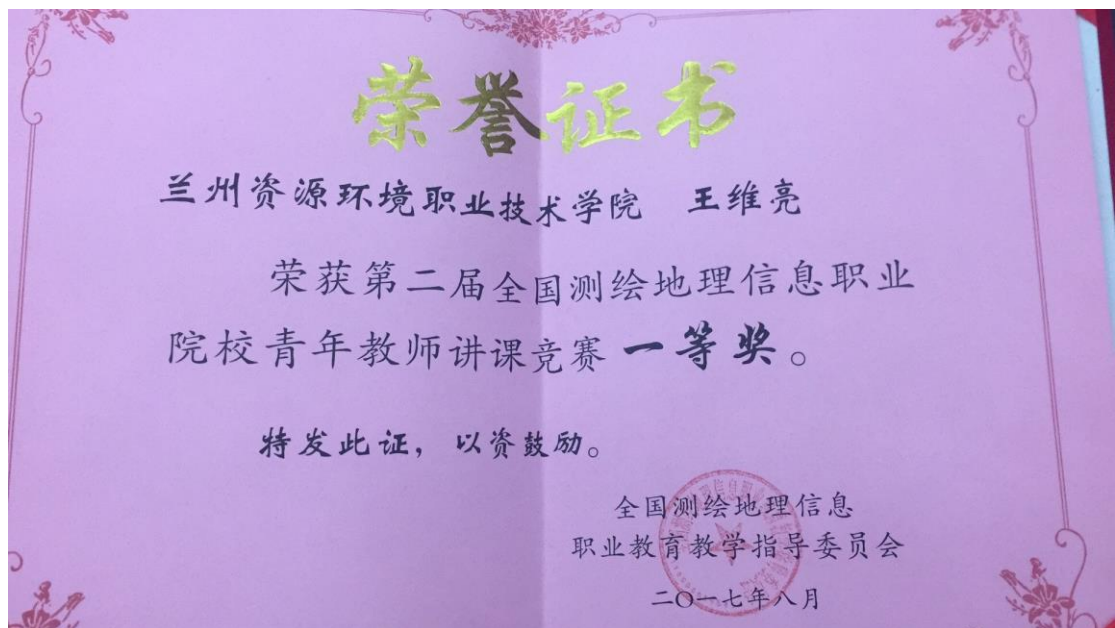 荣誉证书
兰州资源环境职业技术学院 王维亮
荣获第二届全国测绘地理信息职业
院校青年教师讲课竞赛一等奖。
特发此证，以资鼓励。
全国测绘地理信息
职业教育教学指导委员会
二〇一七年八月